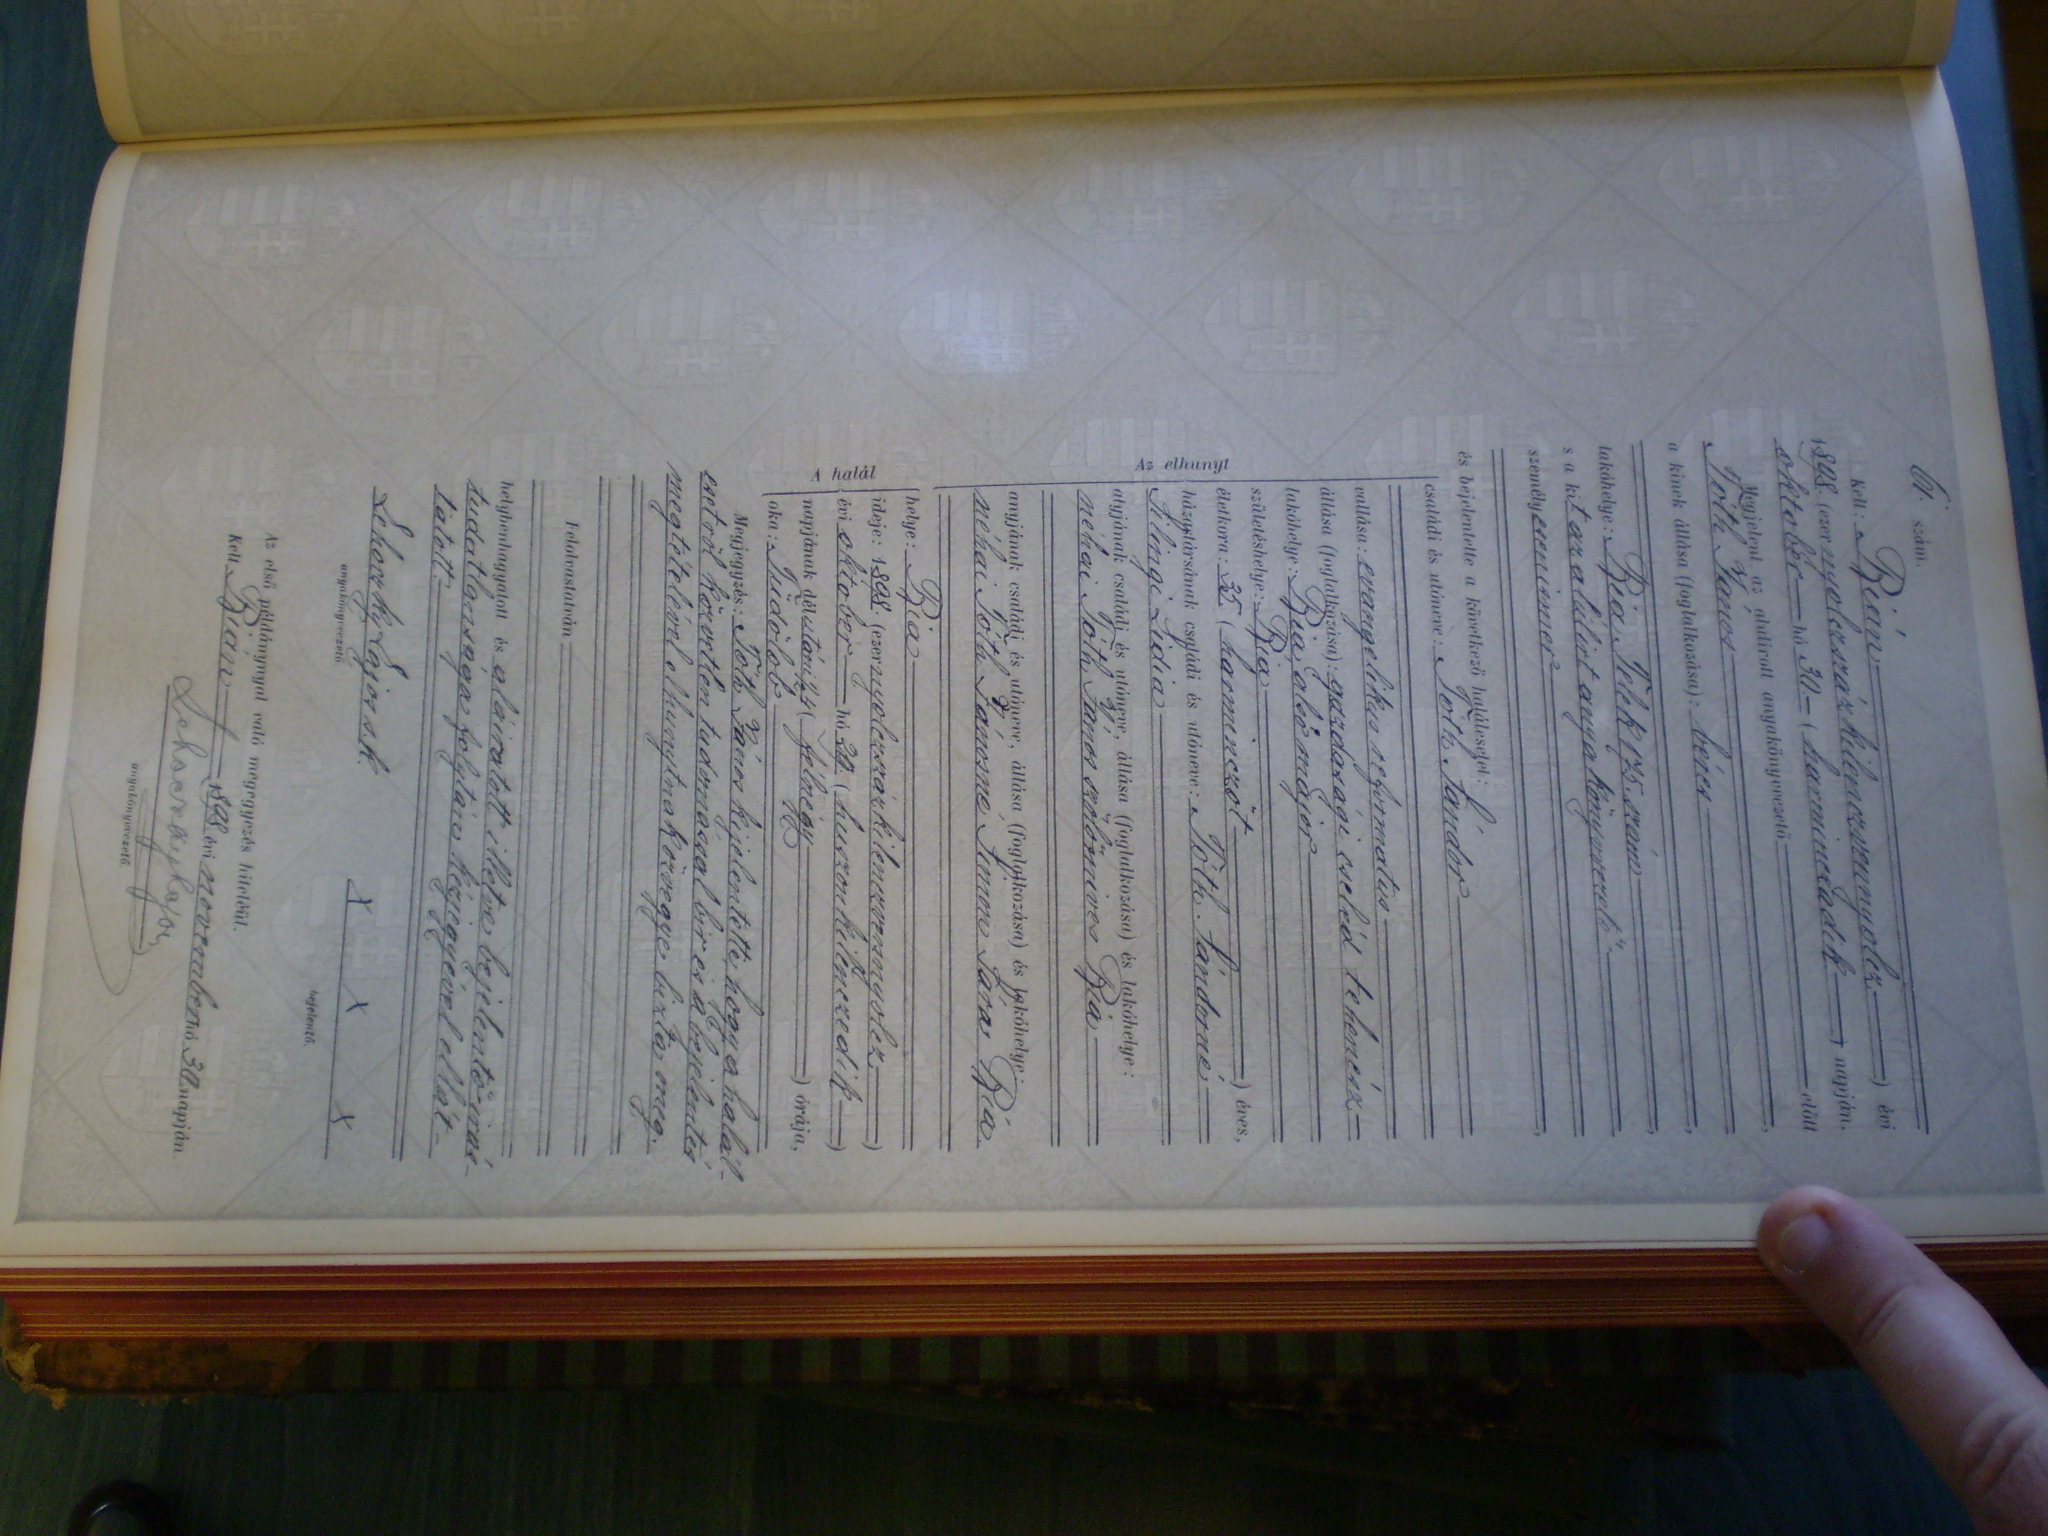 61. szám.
Kelt: Bián 
1898 (ezernyolczszázkilenczvennyolcz) évi
október hó 30 (harminczadik) napján.
Megjelent az alulirott anyakönyvezető előtt
Tóth János
a kinek állása (foglalkozása): béres,
lakóhelye: Bia, Telek 175. szám,
s a kit az alulirt anyakönyvvezető
személyesen ismer,
és bejelentette a következő halálesetet:
családi és utóneve: Tóth Sándor
Az elhunyt
vallása: evangelikus reformatus
állása (foglalkozása): gazdasági cseléd tehenész
lakóhelye: Bia, alsó major
születéshelye: Bia
életkora: 35 (harminczöt) éves,
házastársának családi és utóneve: Tóth Sándorné
Lidia
atyjának családi és utóneve, állása (foglalkozása) és lakóhelye:
néhai Tóth János Bia
anyjának családi és utóneve, állása (foglalkozása) és lakóhelye:
néhai Tóth Jánosné Sára Bia
A halál
helye: Bia
ideje: 1898 (ezernyolczszázkilenczvennyolcz)
évi október hó 29 (huszonkilenczedik)
napjának délutáni (félnégy) órája,
oka: Tüdőlob.
Megjegyzés: Tóth János kijelentette hogy a halál-
esetről közvetlen tudomással bir és a bejelentés
megtételével elhunytnak özvegye bizta meg.
Felolvastatván
helybenhagyatott és aláiratott illetve bejelentő irás-
tudatlansága folytán kézjegyével ellát-
tatott.
Lehoczky Lajos s.k.
anyakönyvvezető
X X X
bejelentő.
Az első példánynyal való megegyezés hiteléül.
Kelt Bián 1898 évi november hó 30 napján.
Lehoczky Lajos
anyakönyvvezető.